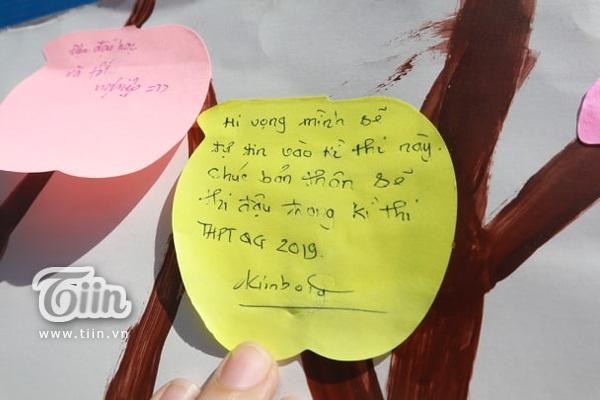 đậu đại học
và tốt
nghiệp =))
Hi vọng mình sẽ
tự tin vào kì thi này.
chúc bản thân sẽ
thi đậu trong kì thi
THPT QG 2019.
Tiin
www.tiin.vn